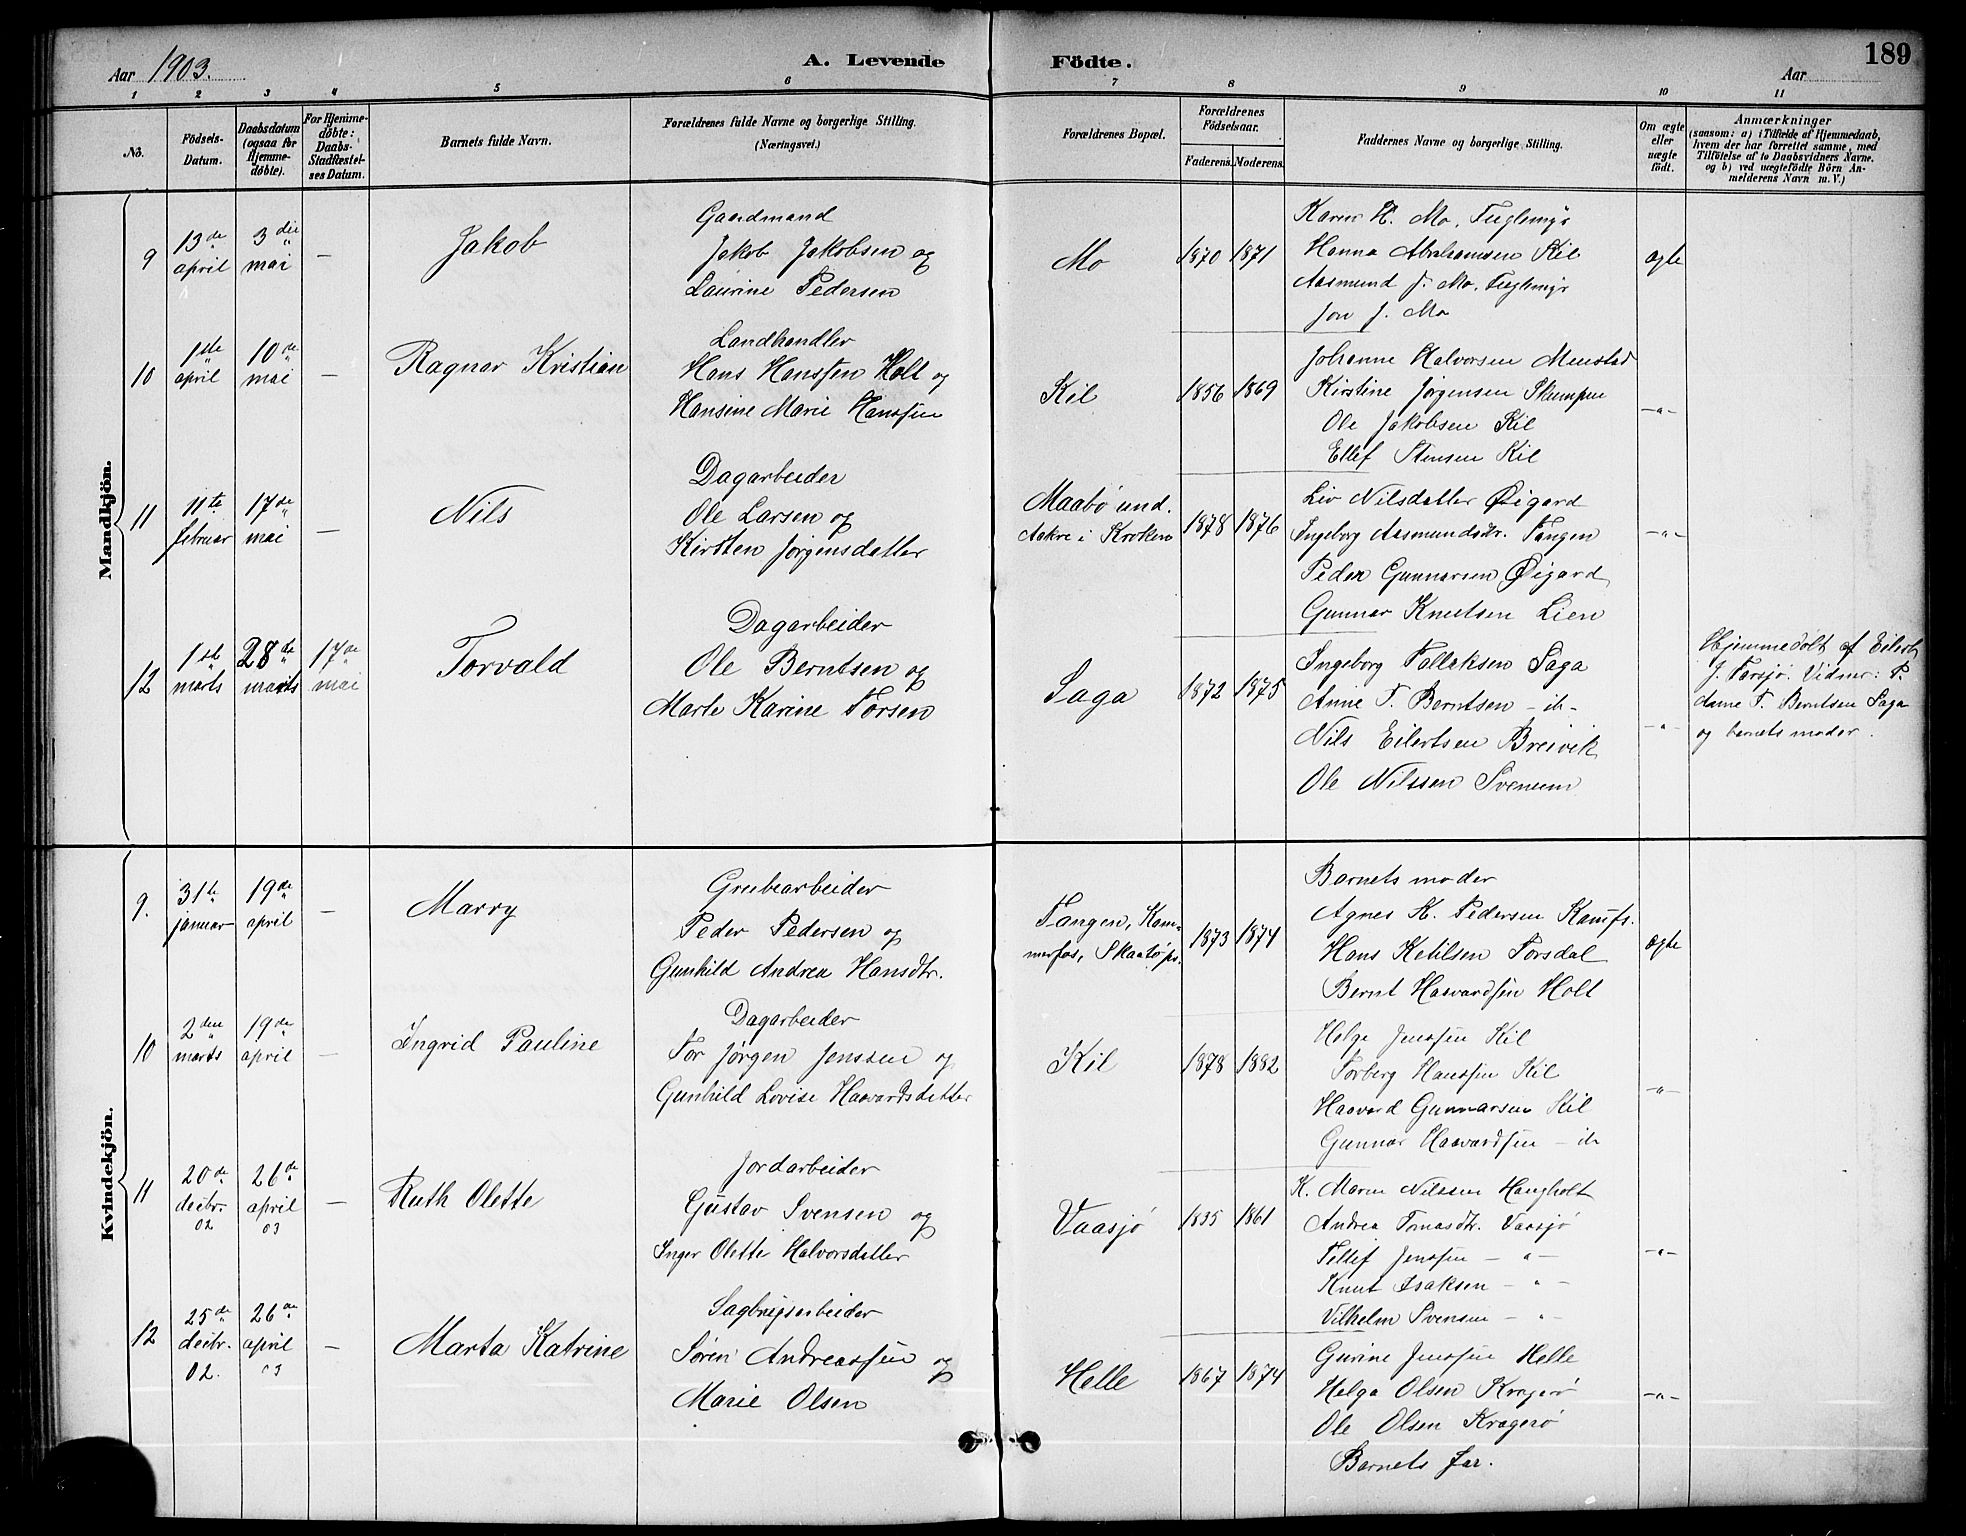 Aar 1903.
A. Levende Födte.
Aar
189
1 2 3 4 5 6 7 8 9 10 11
No.
Födsels-Datum.
Daabsdatum (ogsaa for Hjemme-døbte).
For Hjemme-døbte: Daabs-Stadfæstel-ses Datum.
Barnets fulde Navn.
Forældrenes fulde Navne og borgerlige Stilling. (Næringsvei.)
Forældrenes Bopæl.
Forældrenes Födselsaar.
Faderens. Moderens.
Faddernes Navne og borgerlige Stilling.
Om ægte eller uægte födt.
Anmærkninger (saasom: a) i Tilfælde af Hjemmedaab, hvem der har forrettet samme, med Tilföielse af to Daabsvidners Navne. og b) ved uægtefödte Börn Anmelderens Navn m. V.)
Mandkjön.
9
13de april
3die mai
—
Jakob
Gaardmand
Jakob Jakobsen og
Laurine Pedersen
Mo
1870 1871
Karen H. Mo,
Hanna Abrahamsen Kil
Aasmund J. Mo,
Jon J. Mo
ægte
10
1ste april
10de mai
—
Ragnar Kristian
Landhandler
Hans Hanssen Holt og
Hansine Marie Hanssen
Kil
1856 1869
Johanne Halvorsen Menstad
Kirstine Jørgensen
Ole Jakobsen Kil
Ellef Stensen Kil
—"—
11
11te februar
17de mai
—
Nils
Dagarbeider
Ole Larsen og
Kirsten Jørgensdatter
Maabø und.
Aakre i Kroken
1878 1876
Liv Nilsdatter Øigard
Ingeborg Aasmundsdtr. Tangen
Peder Gunnarsen Øigard
Gunnar Knutsen Lien
—"—
12
1ste marts
28de marts
17de mai
Torvald
Dagarbeider
Ole Berntsen og
Marte Karine Torsen
Saga
1872 1875
Ingeborg Tallaksen Saga
Anne T. Berntsen —
Nils Eilertsen Breivik
Ole Nilssen Svenum
—"—
Hjemmedøbt af Eilert
J. Farsjø. Vidner:
T. Berntsen Saga
og barnets moder.
Kvindekjön.
9.
31te januar
19de april
—
Marry
Grubearbeider
Peder Pedersen og
Gunhild Andrea Hansdtr.
Tangen, Kam-
merfos, Skaatøps.
1873 1874
Barnets moder
Agnes K. Pedersen Kamfs.
Hans Ketilsen Torsdal
Bernt Haavardsen Holt
ægte
10
2den marts
19de april
—
Ingrid Pauline
Dagarbeider
Tor Jørgen Jenssen og
Gunhild Lovise Haavardsdatter
Kil
1878 1882
Helge Jenssen Kil
Torberg Hanssen Kil
Haavard Gunnarsen Kil
Gunnar Haavardsen —
—"—
11
20de decbr. 02
26de april 03
—
Ruth Olette
Jordarbeider
Gustav Svensen og
Inger Olette Halvorsdatter
Vaasjø
1835 1861
K. Maren Nilssen Haugholt
Andrea Tomasdtr. Vaasjø
Tellef Jenssen — " —
Knut Isaksen — " —
Vilhelm Svensen — " —
—"—
12
25de decbr. 02.
26de april 03
—
Marta Katrine
Sagbrugsarbeider
Søren Andreassen og
Marie Olsen
Helle
1867 1874
Gurine Jenssen Helle
Helga Olsen Kragerø
Ole Olsen Kragerø
Barnets far.
—"—